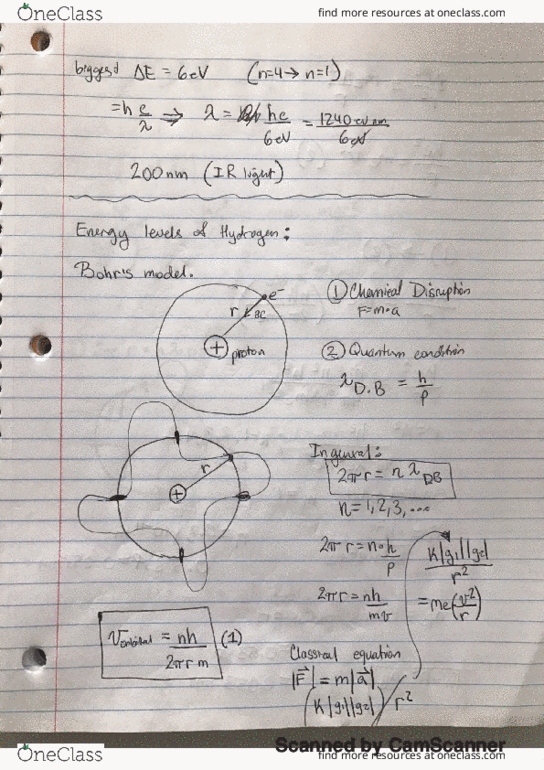 OneClass
find more resources at oneclass.com
biggest ΔE = 6eV (n=4→n=1)
=h c/λ ⇒ λ = hc/6eV = 1240 eV nm/6eV
200nm (IR light)
Energy levels of Hydrogen:
Bohr's model.
e⁻
r
+
proton
① Chemical Disruption
F=m·a
② Quantum condition
λ D.B = h/p
r
+
In general:
2πr = nλ DB
n=1,2,3,...
2πr=n·h/p
2πr=nh/mv
K|q₁||q₂|/r²
=me(v²/r)
V orbital = nh/2πrm (1)
Classical equation
|F⃗|=m|a⃗|
(K|q₁||q₂|)/r²
Scanned by CamScanner
OneClass
find more resources at oneclass.com